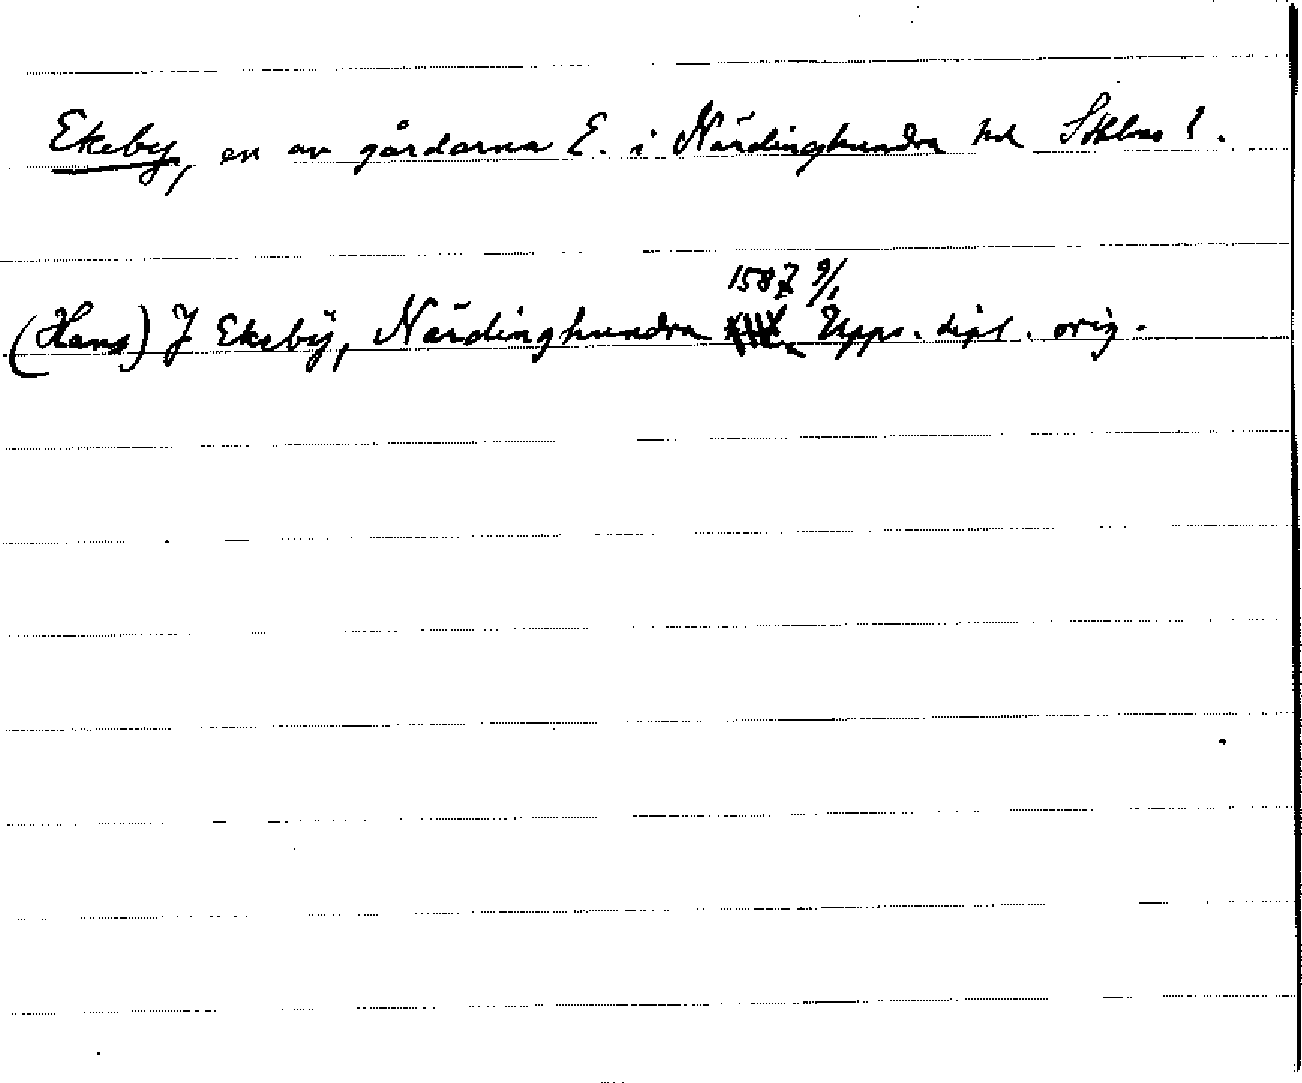 Ekeby, en av gårdarna E. i Närdinghundra hd Sthlms l.
1587 9/1
(Hans) J Ekebÿ, Närdinghundra Upps. dipl. orig.